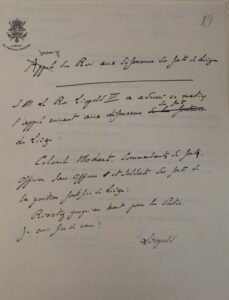 13
Appel du Roi aux défenseurs des forts de Liège
S.M. Le Roi Léopold III a adressé ce matin
l'appel suivant aux défenseurs des forts
de Liège :
Colonel Modard, Commandant des forts,
Officiers, Sous Officiers et Soldats des forts de
la position fortifiée de Liège :
Résistez jusqu'au bout pour la Patrie.
Je suis fier de vous !
Léopold